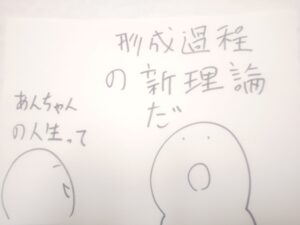 形成過程
の新理論
だ
あんちゃん
の人生って